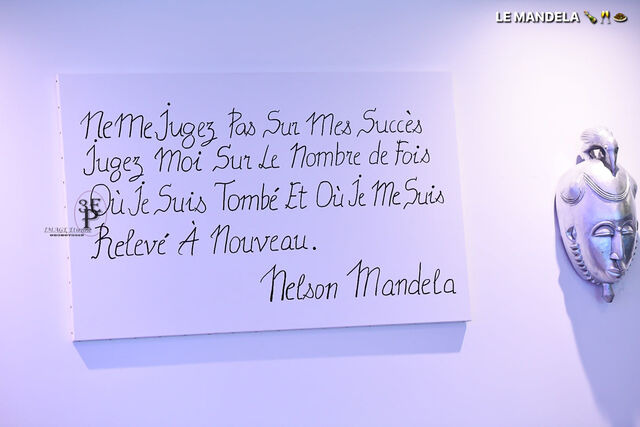 LE MANDELA
Ne Me Jugez Pas Sur Mes Succès
Jugez Moi Sur Le Nombre de Fois
Où Je Suis Tombé Et Où Je Me Suis
Relevé À Nouveau.
Nelson Mandela
3E
P